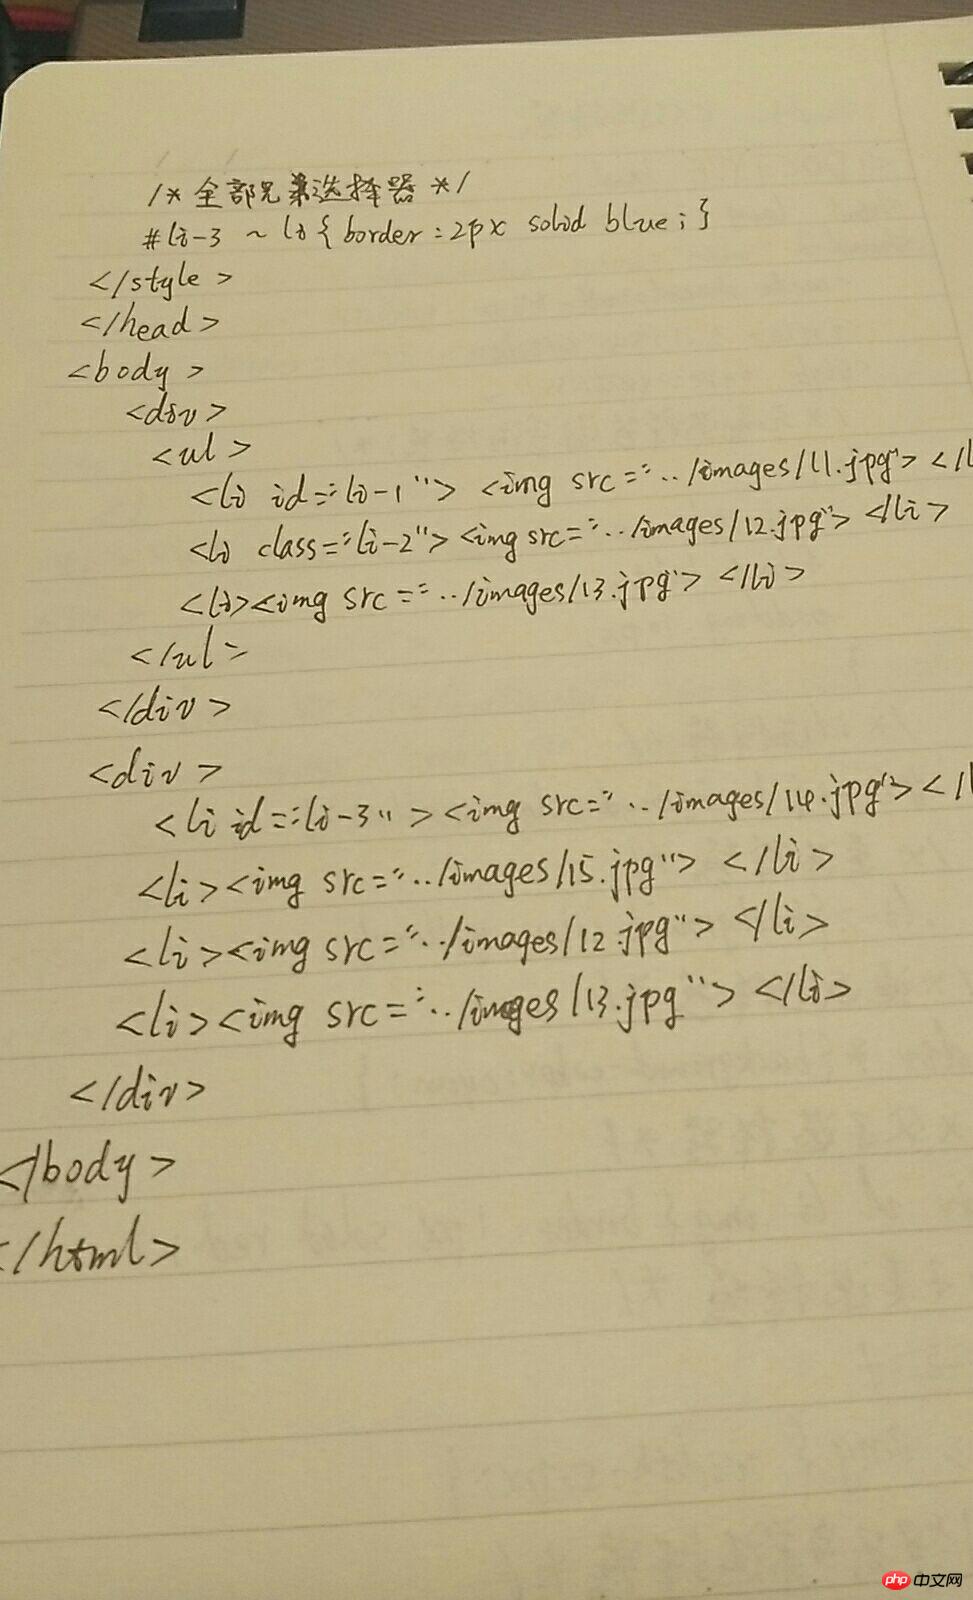 /* 全部兄弟选择器 */
#li-3 ~ li { border : 2px solid blue ; }
</style>
</head>
<body>
<div>
<ul>
<li id="li-1"> <img src="../images/11.jpg"> </l
<li class="li-2"><img src="../images/12.jpg"> </li>
<li><img src="../images/13.jpg"> </li>
</ul>
</div>
<div>
<li id="li-3"><img src="../images/14.jpg"> </l
<li><img src="../images/15.jpg"> </li>
<li><img src="../images/12.jpg"> </li>
<li><img src="../images/13.jpg"> </li>
</div>
</body>
</html>
php 中文网